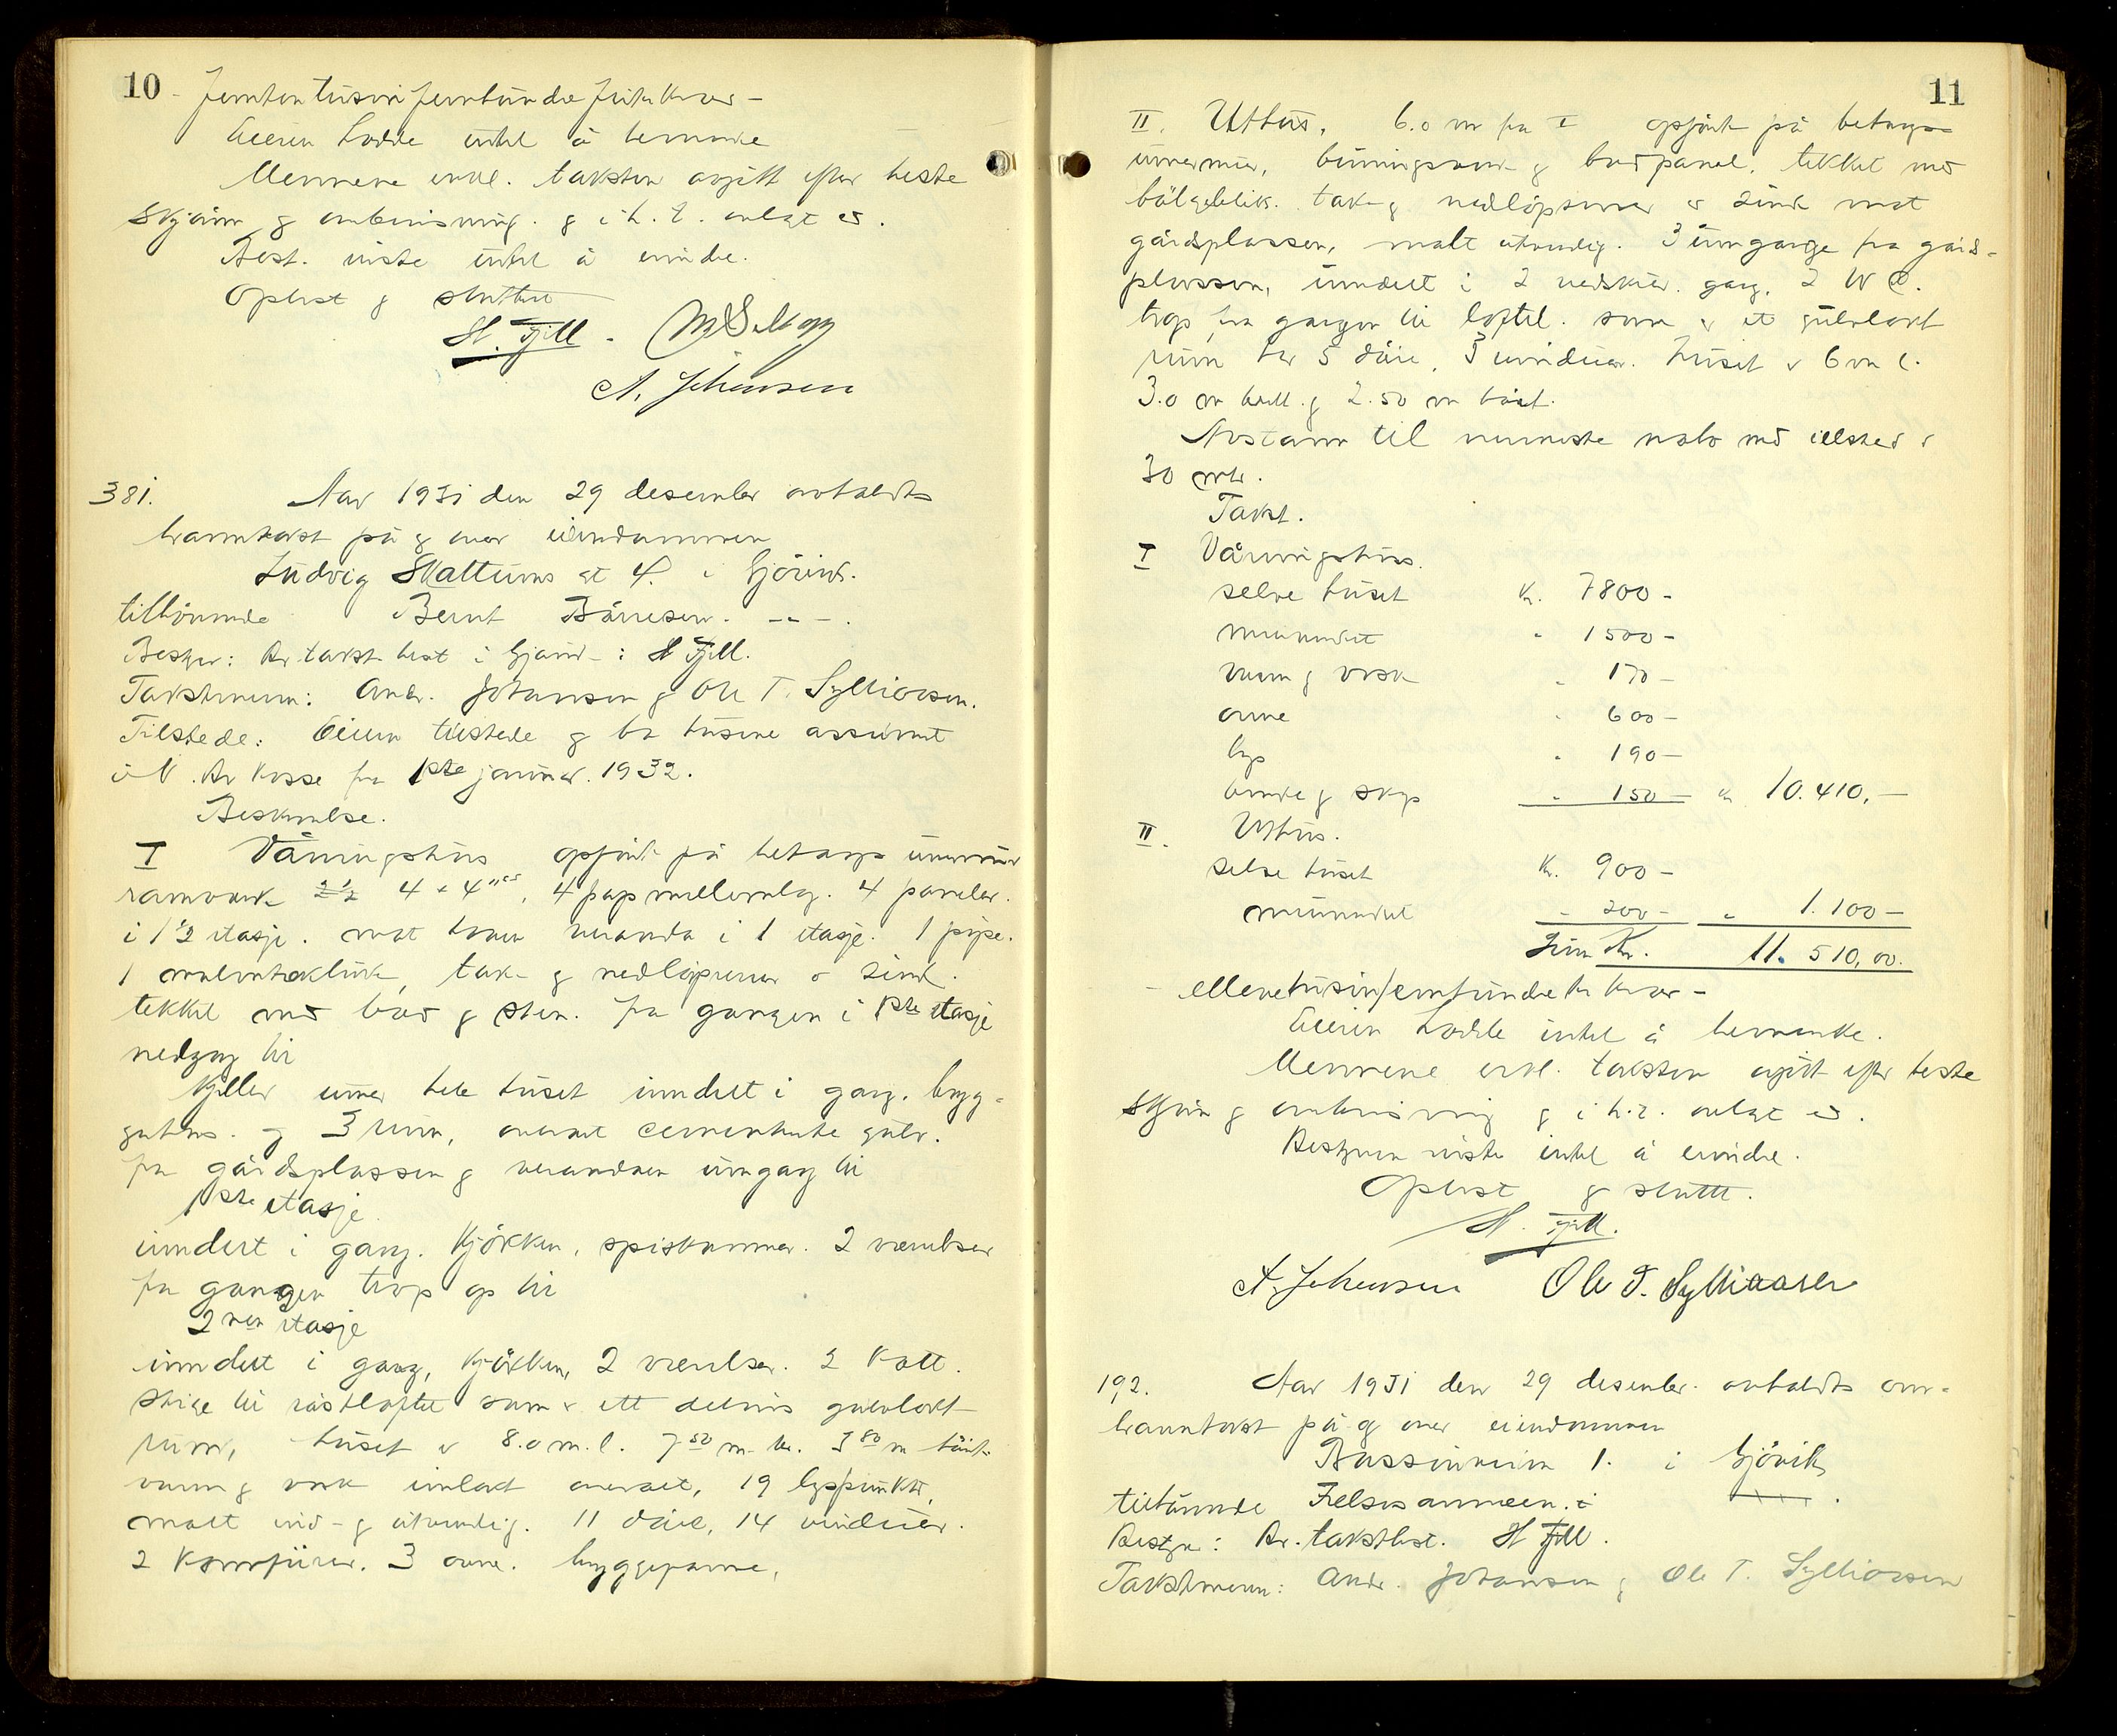 10
- femten tusen femhundre fritikroner -
Eieren hadde intet å bemerke
Mennene erkl. taksten avgitt efter beste
skjønn & overbevisning. & i h. t. avlagt ed.
Best. visste intet å erindre.
Oplest & sluttet
H. Fjell.
A. Johansen
381. Aar 1931 den 29 desember avholdtes
branntakst på & over eiendommen
Ludvig Skattums gt 4. i Gjövik.
tilhörende Bernt Börresen. -"-.
Bestyr: Br. takst best i Gjövik: H Fjell.
Takstmenn: Andr. Johansen & Ole T. Sylliaasen.
Tilstede: Eieren tilstede & ba husene assurert
i N. Br. kasse fra 1ste januar. 1932.
Beskrivelse.
I Våningshus opfört på betongs unnermur
ramverk 4 x 4", 4 pap mellemlag. 4 paneler.
i 1 1/2 etasje. mot haven veranda i 1 etasje. 1 pipe.
1 tak- & nedlöpsrenner av sink.
tekket med bord & sten. fra gangen i 1ste etasje
nedgang til
Kjeller unner hele huset inndelt i gang. brygg-
gerhus. & 3 rum, overalt cementerte gulv.
fra gårdsplassen & verandaen inngang til
1ste etasje
inndelt i gang. Kjökken, spiskammer. 2 værelser
fra gangen trap op til
2nen etasje
inndelt i gang, Kjökken, 2 værelser. 2 kott.
Stige til röstloftet som er ett delvis gulvlagt
rum, huset er 8.0 m. l. 7 50 m. br. 3 80 m höit.
vann & vask innlagt overalt, 19 lyspunkter,
malt inv- & utvendig. 11 döre, 14 vinduer.
2 Komfürer. 3 ovne. bryggepanne,
11
II. Uthus, 6.0 m fra I opfört på betongs
unnermur, binningsverk & bordpanel, tekket med
bölgeblik. tak- & nedlöpsrenner av sink mot
gårdsplassen, malt utvendig. 3 inngange fra gårds-
plassen, inndelt i 2 vedskur. gang. 2 W C.
trap fra gangen til loftet. som er et gulvlagt
rum har 5 döre, 3 vinduer. Huset er 6 m l.
3.0 m bredt. & 2.50 m höit.
Avstann til nermeste nabo med ildsted er
30 mtr.
Takst.
I Våningshus.
selve huset Kr. 7800 -
murverket " 1500 -
vann & vask " 170 -
ovne " 600 -
lys " 190 -
" 150 - Kr 10.410,-
II. Uthus.
selve huset Kr. 900 -
murverket " 200 - " 1.100 -
Sum Kr. 11.510,00.
- ellevetusinfemhundreti kroner -
Eieren hadde intet å bemerke.
Mennene erkl. taksten avgitt efter beste
skjönn & overbevisning & i h. t. avlagt ed.
Bestyreren visste intet å erindre.
Oplest & sluttet.
H. Fjell.
A. Johansen Ole T. Sylliaasen
192. Aar 1931 den 29 desember. avholdtes om-
branntakst på & over eiendommen
Bassinveien 1. i Gjövik
tilhörende Frelsesarmeen. i -"-.
Bestyr: Br. takstbest. H Fjell.
Takstmenn: Andr. Johansen & Ole T. Sylliaasen